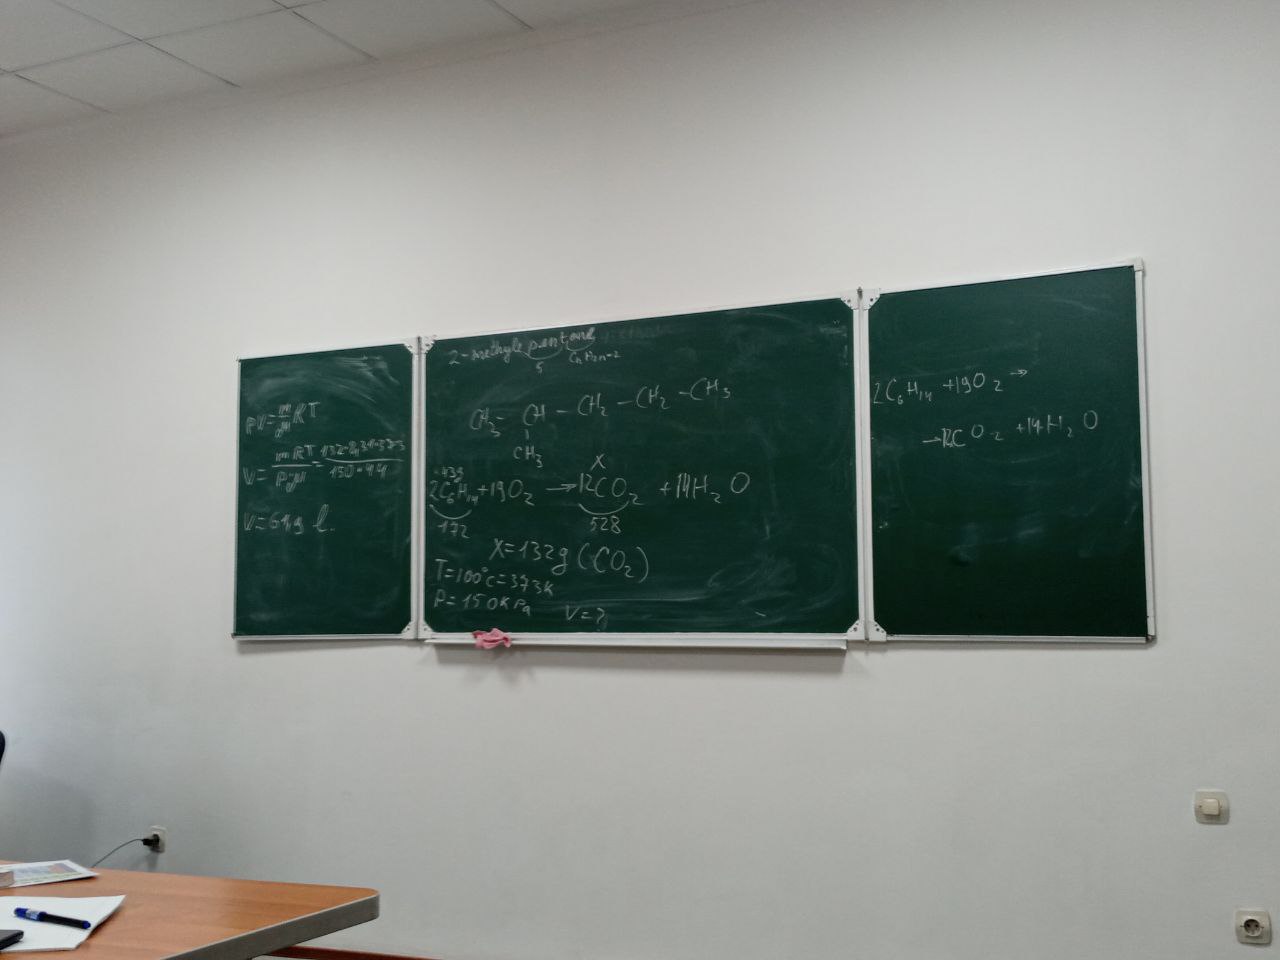 pV=m/μ RT
V=mRT/P·μ=132·8,31·373/150·44
V=61,9 l.
2-methyle pentane
5 CnH2n-2
CH3-CH-CH2-CH2-CH3
CH3
43g x
2C6H14+19O2→12CO2+14H2O
172 528
X=132g(CO2)
T=100°C=373K
P=150KPa V=?
2C6H14+19O2→
→12CO2+14H2O